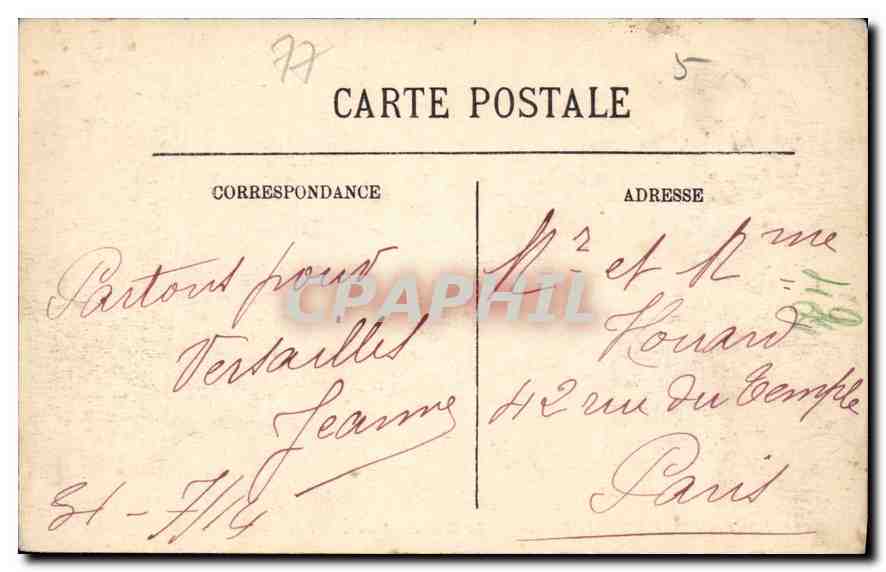 77
5
CARTE POSTALE
CORRESPONDANCE
ADRESSE
Partons pour
Versailles
Jeanne
31 - 7/14
Mr et Mme
Houard
42 rue du Temple
Paris
CPAPHIL